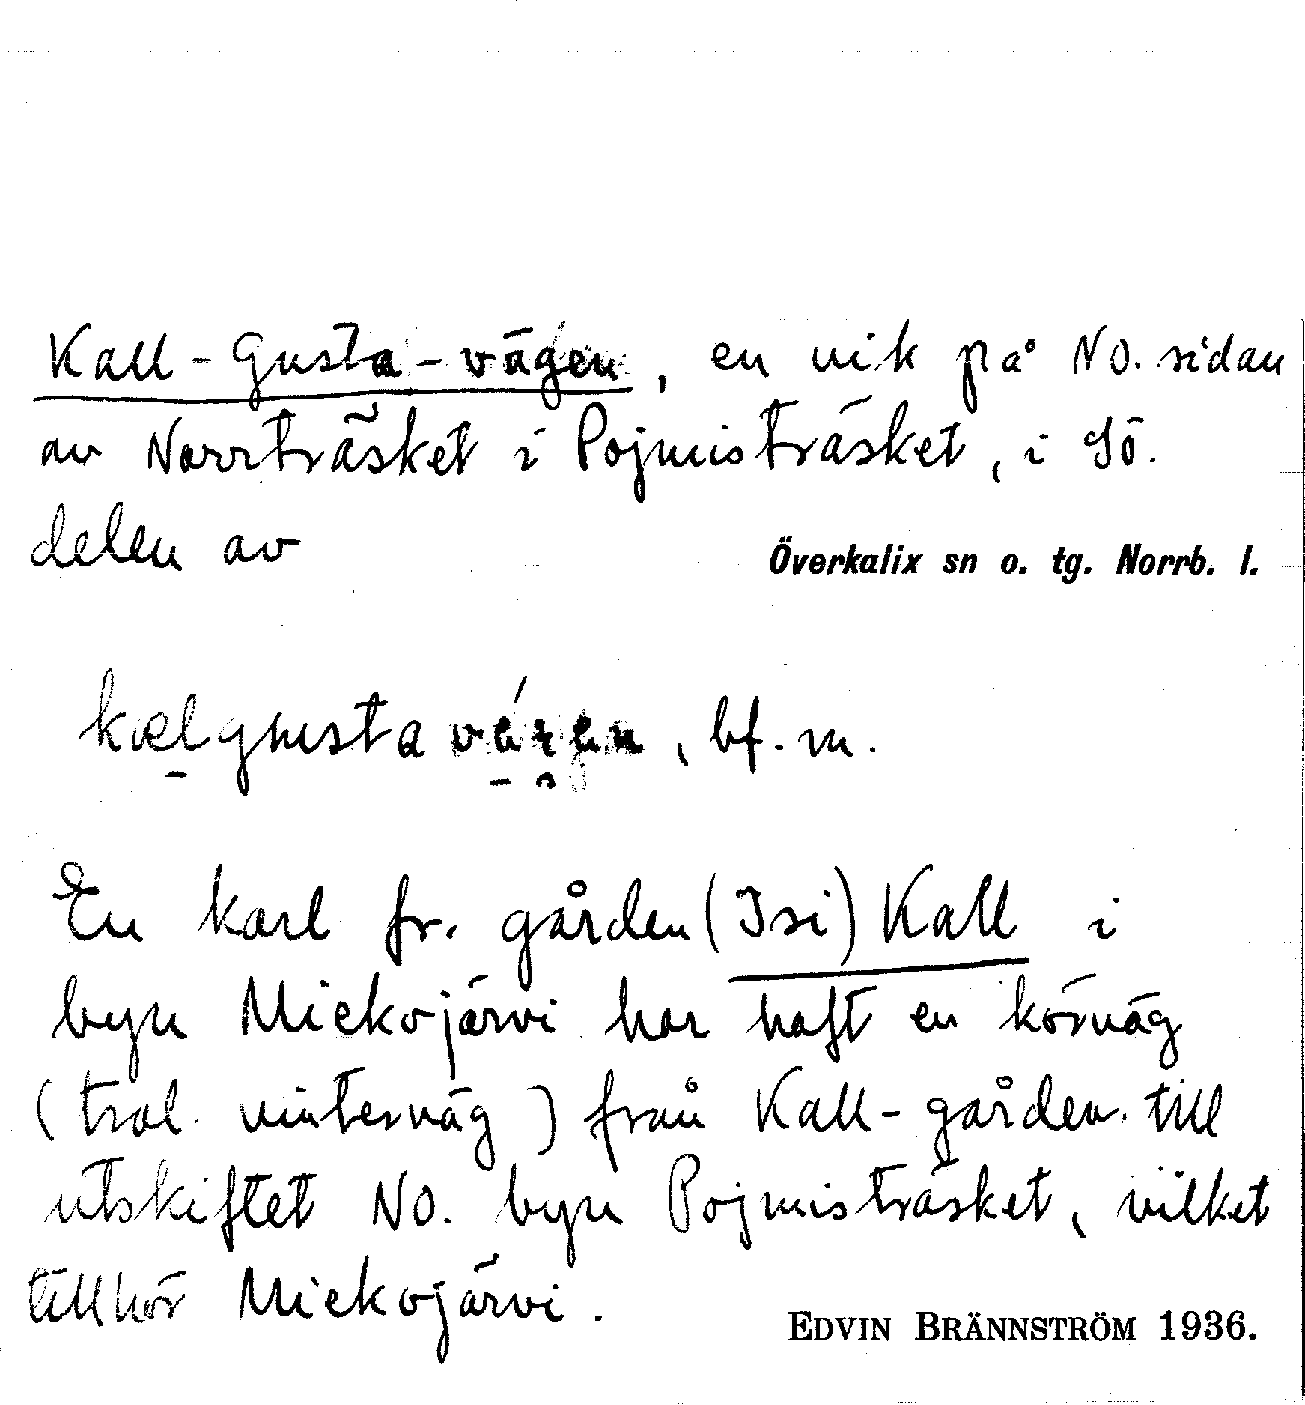 Kall-Gusta-vägen, en vik på NO. sidan
av Norrträsket i Pojmisträsket, i SÖ.
delen av Överkalix sn o. tg. Norrb. l.
kælgusta, bf. m.
En karl fr. gården (Isi) Kall i
byn Mickojärvi har haft en körväg
(trol. vinterväg) från Kall-gården till
utskiftet NO. byn Pojmisträsket, vilket
tillhör Mickojärvi.
EDVIN BRÄNNSTRÖM 1936.